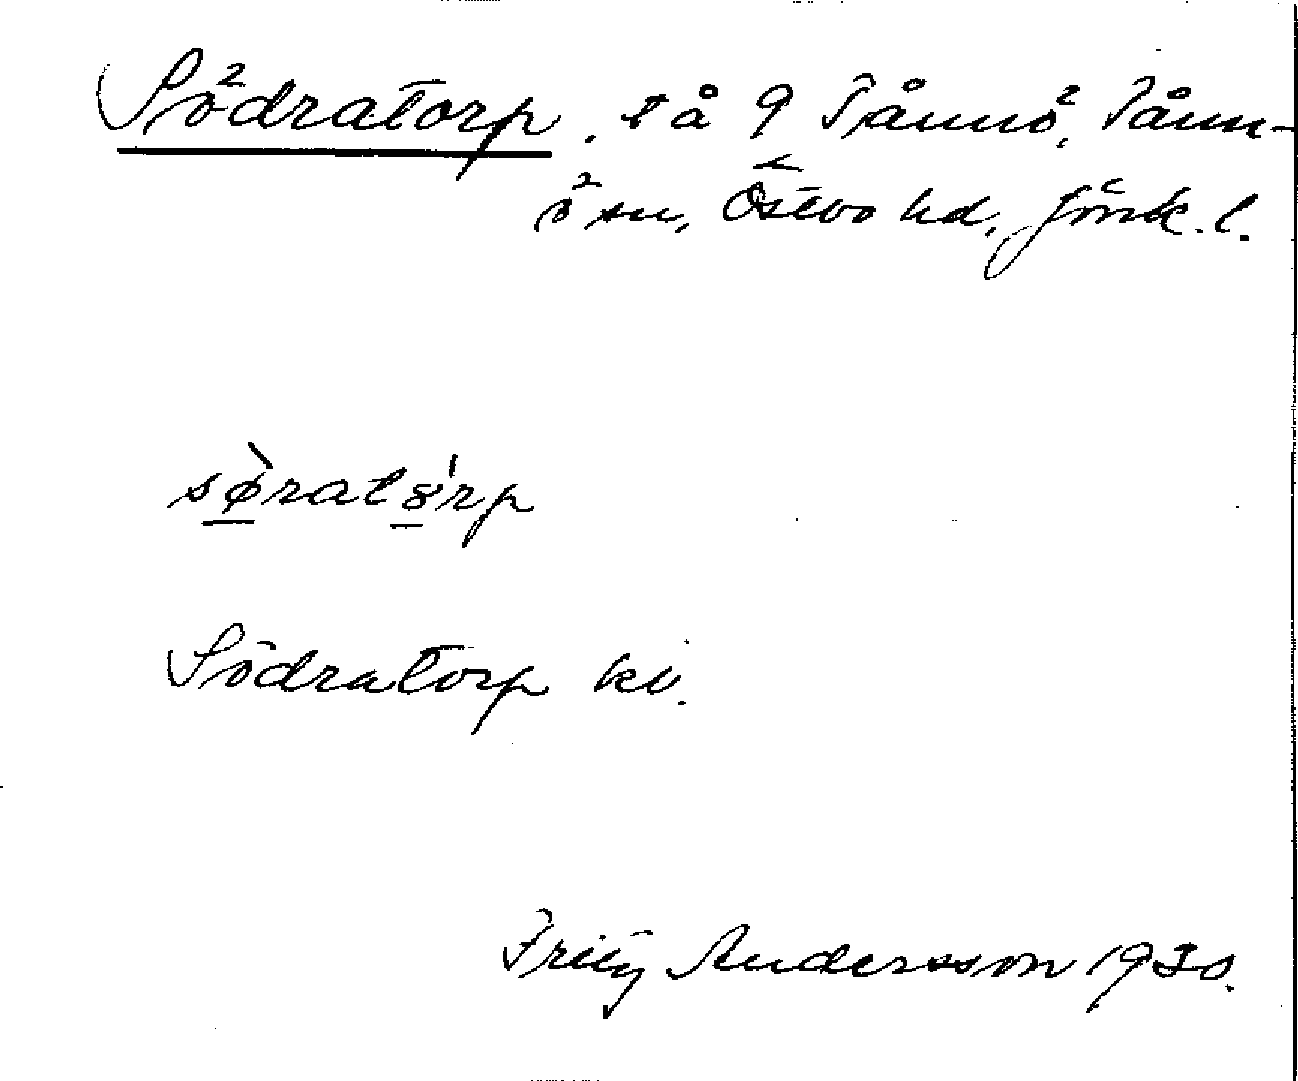 Södratorp, t å 9 Tånnö, Tånn-
ö sn, Östbo hd, Jönk. l.
sø̀ratȣ̍rp
Södratorp kv.
Fritz Andersson 1930.